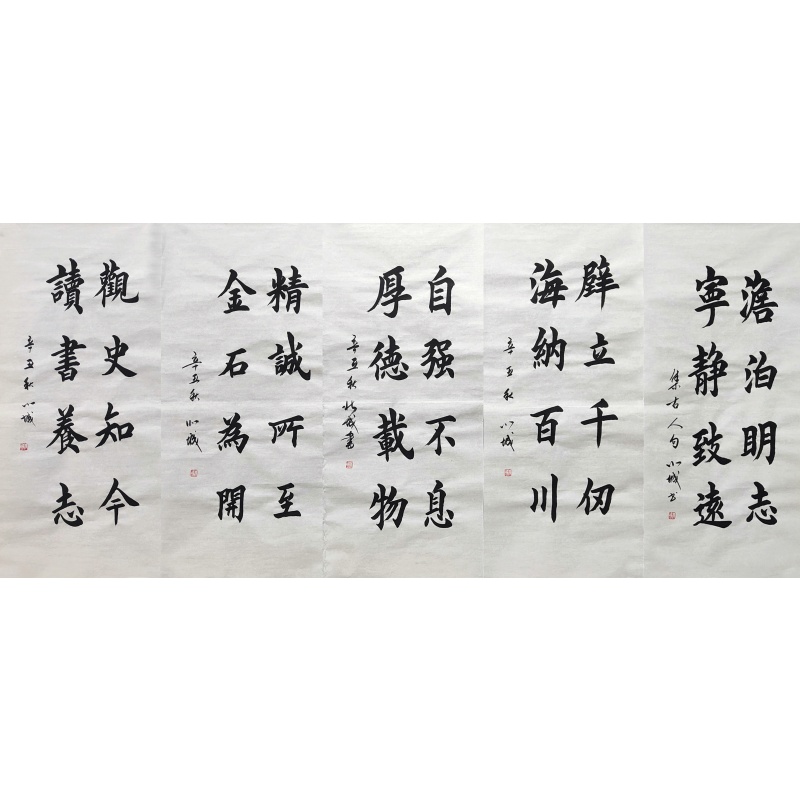 澹泊明志
寧静致遠
集古人句
壁立千仞
海納百川
辛丑秋
自强不息
厚德載物
辛丑秋
精誠所至
金石為開
辛丑秋
觀史知今
讀書養志
辛丑秋